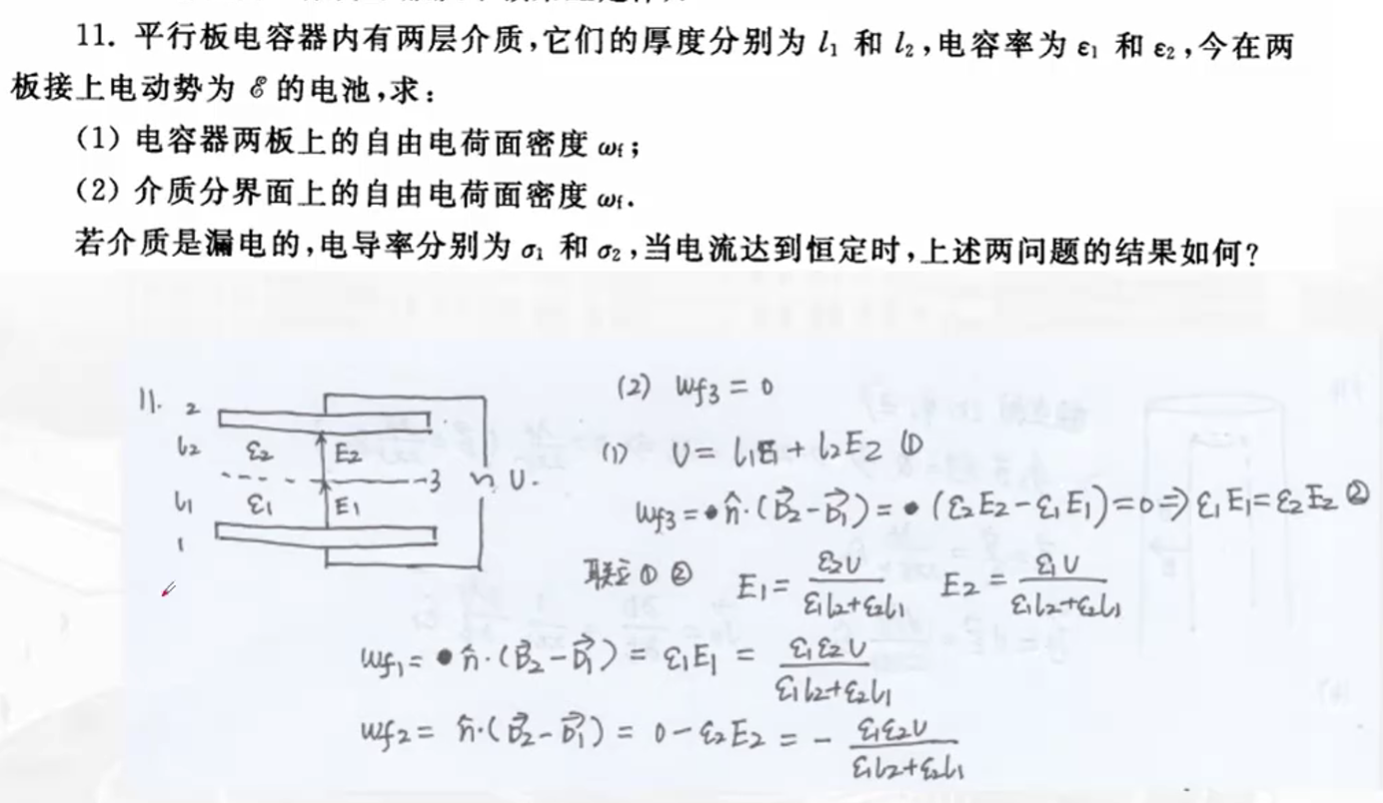 11. 平行板电容器内有两层介质,它们的厚度分别为 l₁ 和 l₂,电容率为 ε₁ 和 ε₂,今在两
板接上电动势为 ℰ 的电池,求:
(1) 电容器两板上的自由电荷面密度 ωf;
(2) 介质分界面上的自由电荷面密度 ωf.
若介质是漏电的,电导率分别为 σ₁ 和 σ₂,当电流达到恒定时,上述两问题的结果如何?
11.
2
l₂ ε₂ E₂
3 U.
l₁ ε₁ E₁
1
(2) Wf3 = 0
(1) U = l₁E₁ + l₂E₂ ①
Wf3 = n̂·(D⃗₂-D⃗₁) = (ε₂E₂-ε₁E₁) = 0 ⇒ ε₁E₁ = ε₂E₂ ②
联立①② E₁ = ε₂U/(ε₁l₂+ε₂l₁) E₂ = ε₁U/(ε₁l₂+ε₂l₁)
Wf1 = n̂·(D⃗₂-D⃗₁) = ε₁E₁ = ε₁ε₂U/(ε₁l₂+ε₂l₁)
Wf2 = n̂·(D⃗₂-D⃗₁) = 0-ε₂E₂ = - ε₁ε₂U/(ε₁l₂+ε₂l₁)